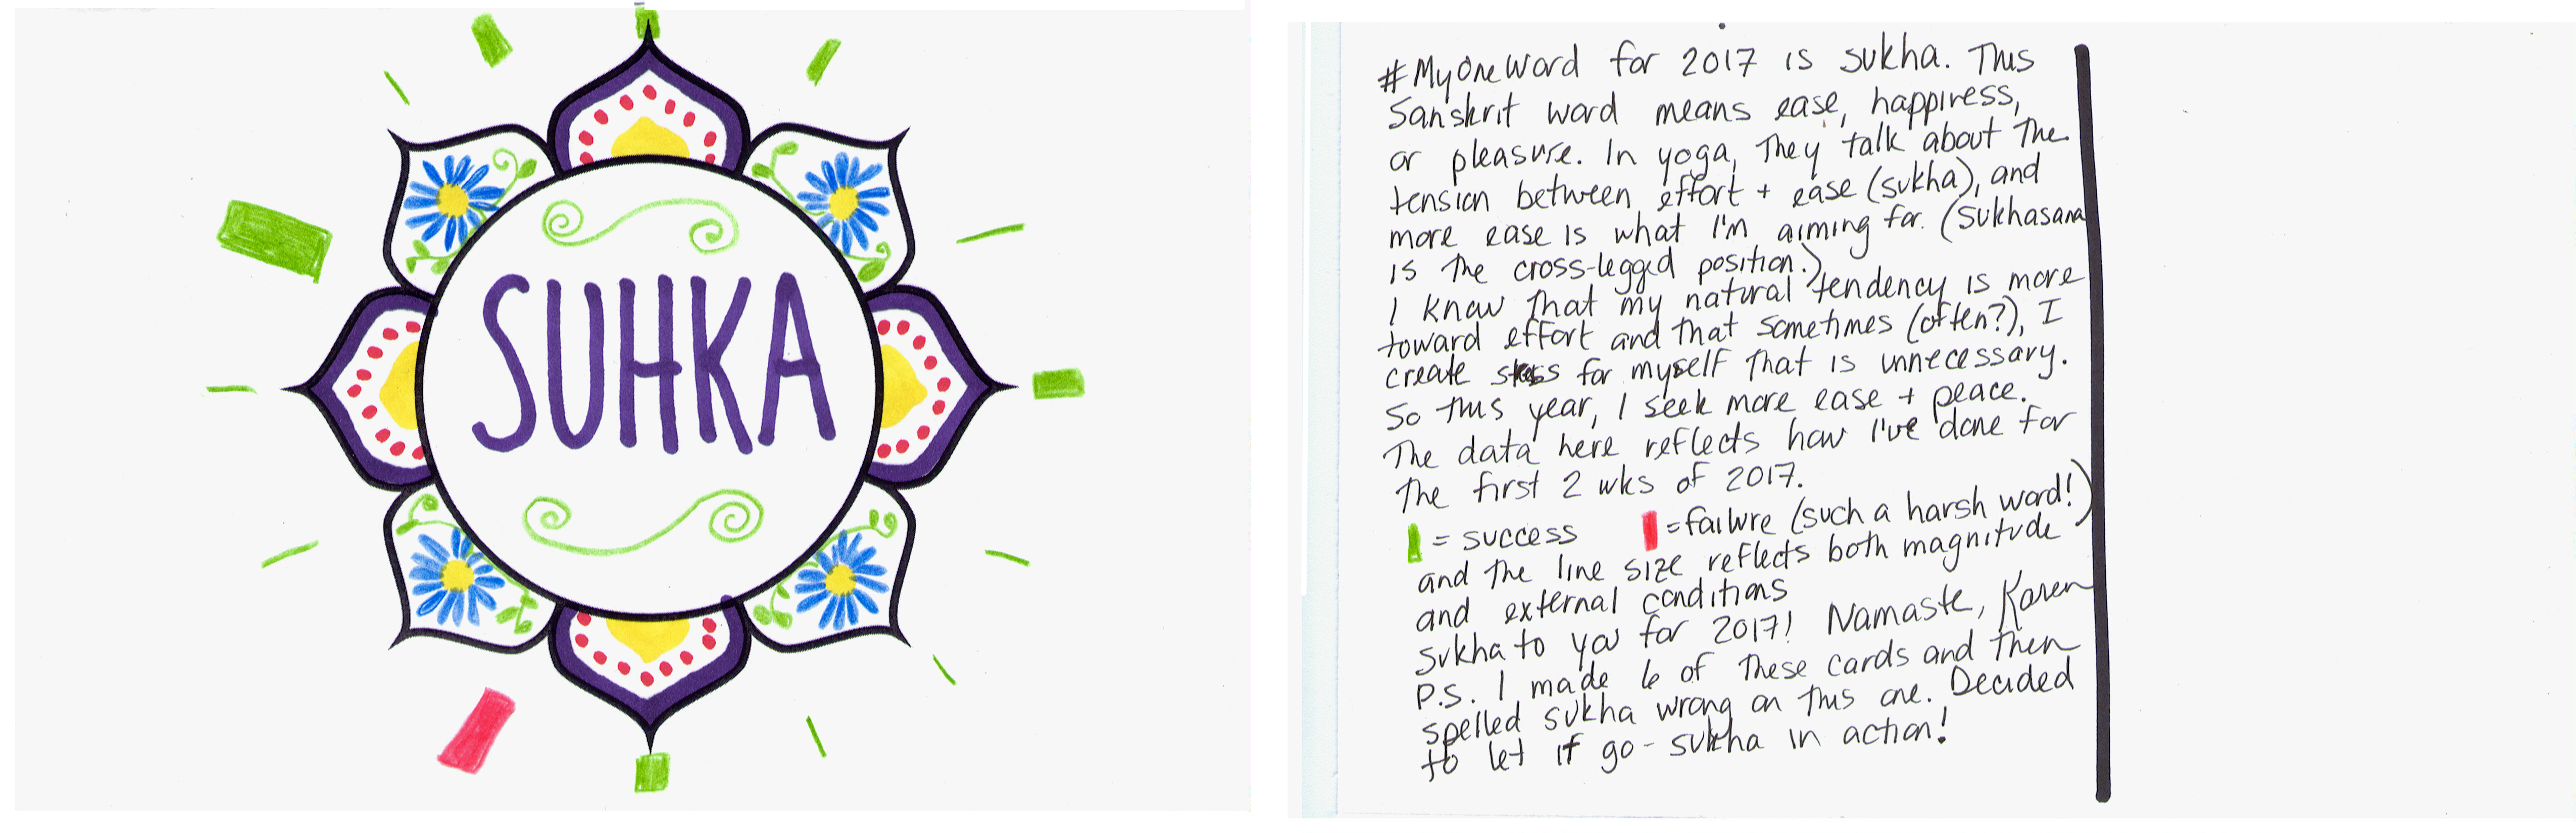 SUHKA
#MyOneWord for 2017 is sukha. This
Sanskrit word means ease, happiness,
or pleasure. In yoga, they talk about the
tension between effort + ease (sukha), and
more ease is what I'm aiming for. (Sukhasana
is the cross-legged position.)
I know that my natural tendency is more
toward effort and that sometimes (often?), I
create stress for myself that is unnecessary.
So this year, I seek more ease + peace.
The data here reflects how I've done for
the first 2 wks of 2017.
= success = failure (such a harsh word!)
and the line size reflects both magnitude
and external conditions
sukha to you for 2017! Namaste, Karen
P.S. I made 6 of these cards and then
spelled sukha wrong on this one. Decided
to let it go - sukha in action!